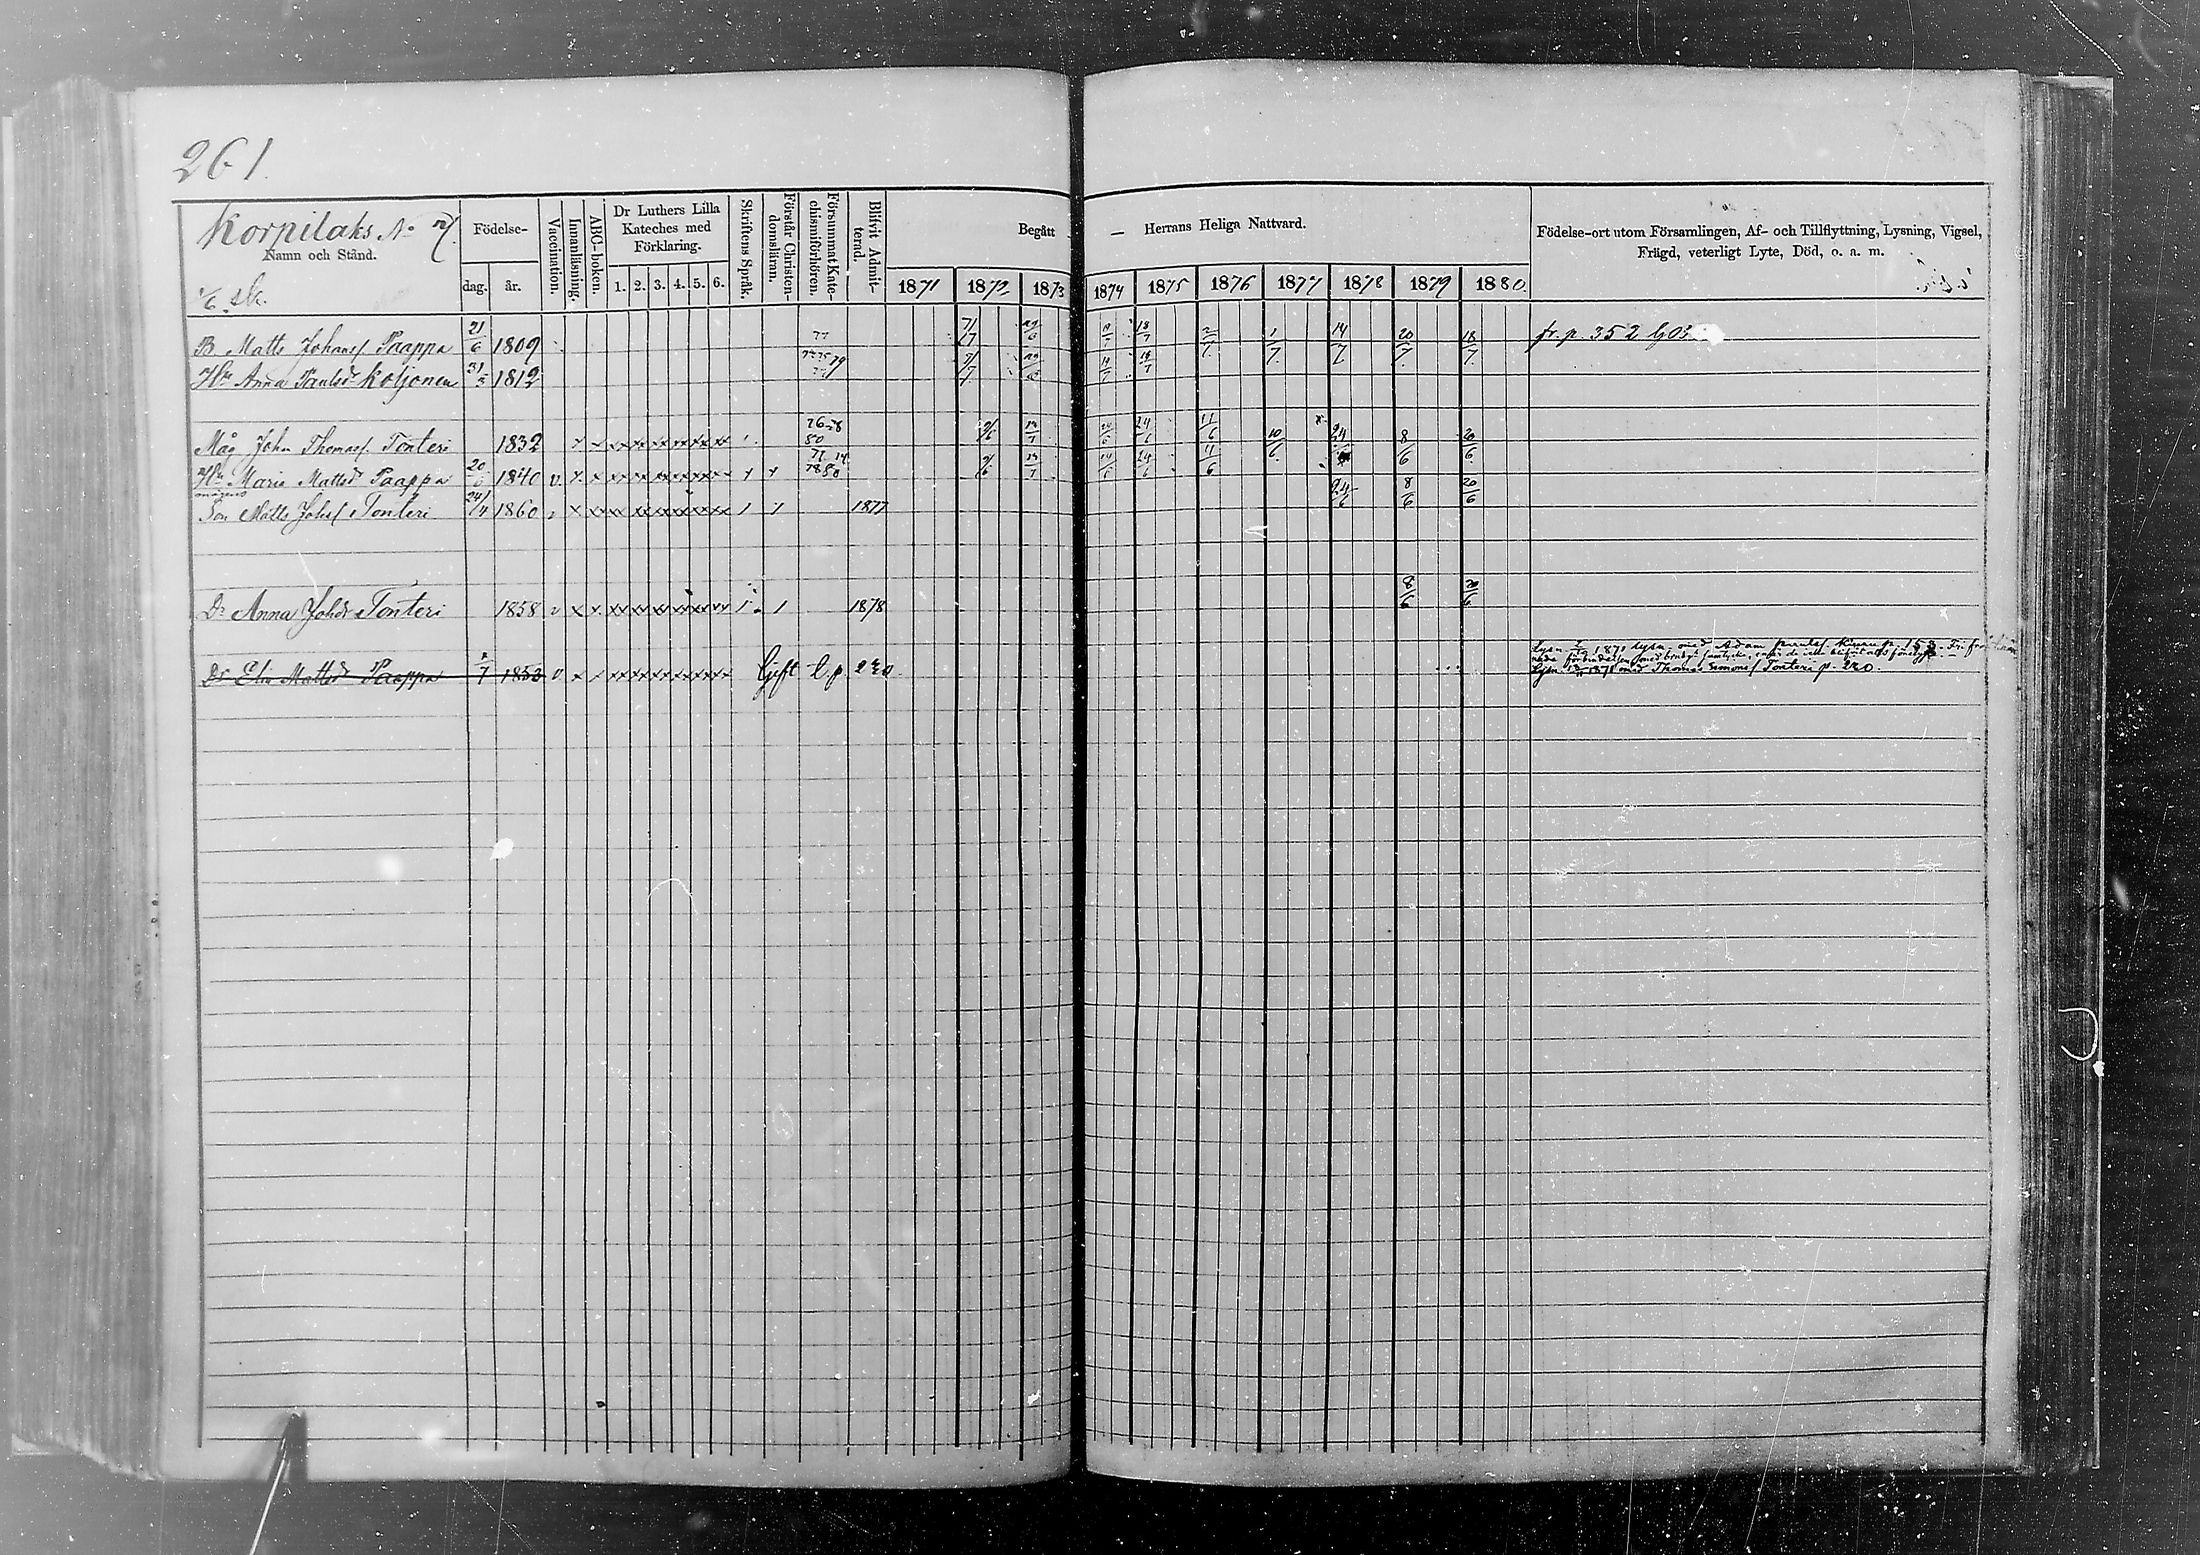 261.
Korpilaks No 7.
Namn och Stånd.
Födelse-
dag.
år.
Vaccination.
Innanläsning.
ABC-boken.
Dr Luthers Lilla
Kateches med
Förklaring.
1. 2. 3. 4. 5. 6.
Skriftens Språk.
Förstår Christen-
domsläran.
Försummat Kate-
chismiförhören.
Blifvit Admit-
terad.
Begått — Herrans Heliga Nattvard.
1871 1872 1873 1874 1875 1876 1877 1878 1879 1880.
Födelse-ort utom Församlingen, Af- och Tillflyttning, Lysning, Vigsel,
Frägd, veterligt Lyte, Död, o. a. m.
1/6 sk.
B Matts Johans Paappa 21/6 1809 77 7/7 29/6 18/7 2/7 1/7 14/7 20/7. 18/7. fr. p. 352
Hu Anna Paulsd Koljonen 31/3 1812 79 7/7 29/6 18/7
Måg Johan Thomas Tonteri 1832 76 78 80 9/6 13/7 24/6 24/6 11/6 10/6. 24 8/6 20/6
Hu Maria Mattsd Paappa 20 1840 v. 9/6 13/7 24/6 11/6
mågens
Son Matts Johs Tonteri 24/4 1860 1877 24/6 8/6 20/6
Dr Anna Johsd Tonteri 1858 v 1878 8/6 20/6
Dr Elin Mattsd Paappa 1/7 1853 v Gift l. p. 220.
Lysn 1871 lysn. med Adam
Lysn 1871 med Thomas Simons Tonteri p. 220.